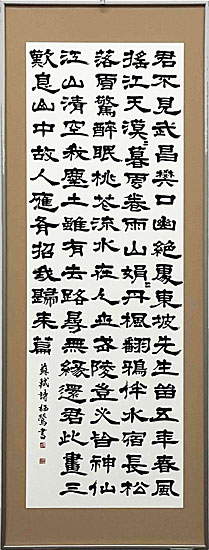 君不見武昌樊口幽絕處東坡先生留五年春風
搖江天漠〻暮雲卷雨山娟〻丹楓翻鴉伴水宿長松
落雪驚醉眠桃花流水在人世武陵豈必皆神仙
江山清空我塵土雖有去路尋無緣還君此畫三
歎息山中故人應有招我歸來篇
蘇軾詩 書